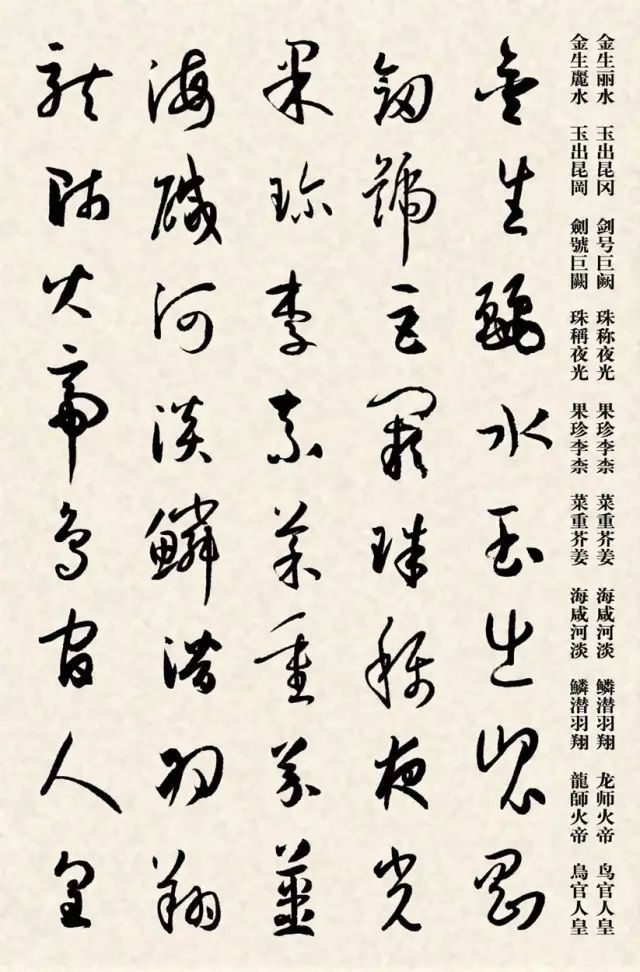 金生丽水 玉出昆冈 剑号巨阙 珠称夜光 果珍李柰 菜重芥姜 海咸河淡 鳞潜羽翔 龙师火帝 鸟官人皇
金生麗水 玉出昆岡 劍號巨闕 珠稱夜光 果珍李柰 菜重芥姜 海咸河淡 鱗潜羽翔 龍師火帝 鳥官人皇
金生麗水玉出崑岡
劍號巨闕珠稱夜光
果珍李柰菜重芥薑
海鹹河淡鱗潛羽翔
龍師火帝鳥官人皇